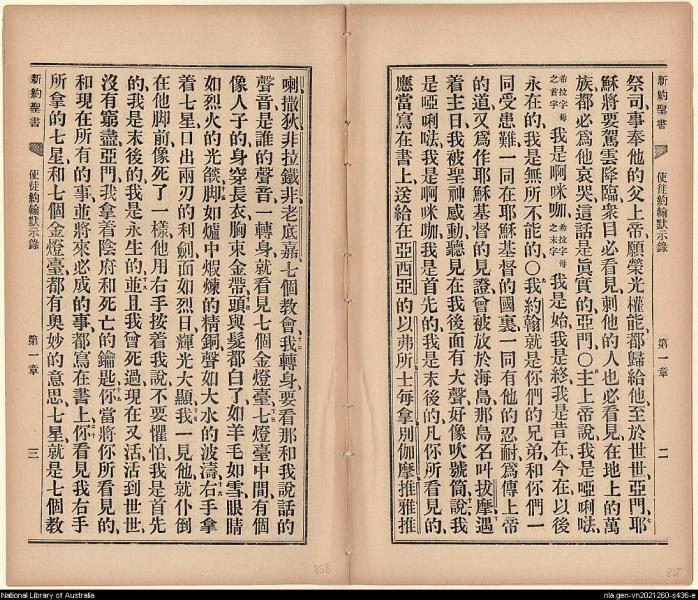 新約聖書 使徒約翰默示錄 第一章 二
祭司、事奉他的父上帝、願榮光權能都歸給他、至於世世、亞門、耶
穌將要駕雲降臨、衆目必看見、刺他的人也必看見、在地上的萬
族、都必爲他哀哭、這話是眞實的、亞門、〇主上帝說、我是啞唎㕸、
希拉字母之首字 我是啊咪咖、希拉字母之末字 我是始、我是終、我是昔在今在以後
永在的、我是無所不能的、〇我約翰就是你們的兄弟、和你們一
同受患難、一同在耶穌基督的國裏、一同有他的忍耐、爲傳上帝
的道、又爲作耶穌基督的見證、曾被放於海島、那島名叫拔摩、遇
着主日、我被聖神感動、聽見在我後面有大聲、好像吹號筒、說、我
是啞唎㕸、我是啊咪咖、我是首先的、我是末後的、凡你所看見的、
應當寫在書上、送給在亞西亞的以弗所、士每拿、別伽摩、推雅推
喇、撒狄、非拉鐵非、老底嘉、七個教會、我轉身、要看那和我說話的
聲音、是誰的聲音、一轉身、就看見七個金燈臺、七燈臺中間、有個
像人子的、身穿長衣、胸束金帶、頭與髮都白了、如羊毛如雪、眼睛
如烈火的光燄、脚如爐中煆煉的精銅、聲如大水的波濤、右手拿
着七星、口出兩刃的利劍、面如烈日輝光大顯、我一見他、就仆倒
在他脚前、像死了一樣、他用右手按着我說、不要懼怕、我是首先
的、我是末後的、我是永生的、並且我曾死過、現在又活、活到世世
沒有窮盡、亞門、我拿着陰府和死亡的鑰匙、你當將你所看見的、
和現在所有的事、並將來必成的事、都寫在書上、你看見我右手
所拿的七星、和七個金燈臺、都有奧妙的意思、七星、就是七個教
新約聖書 使徒約翰默示錄 第一章 三
858
857
National Library of Australia
nla.gen-vn2021260-s436-e